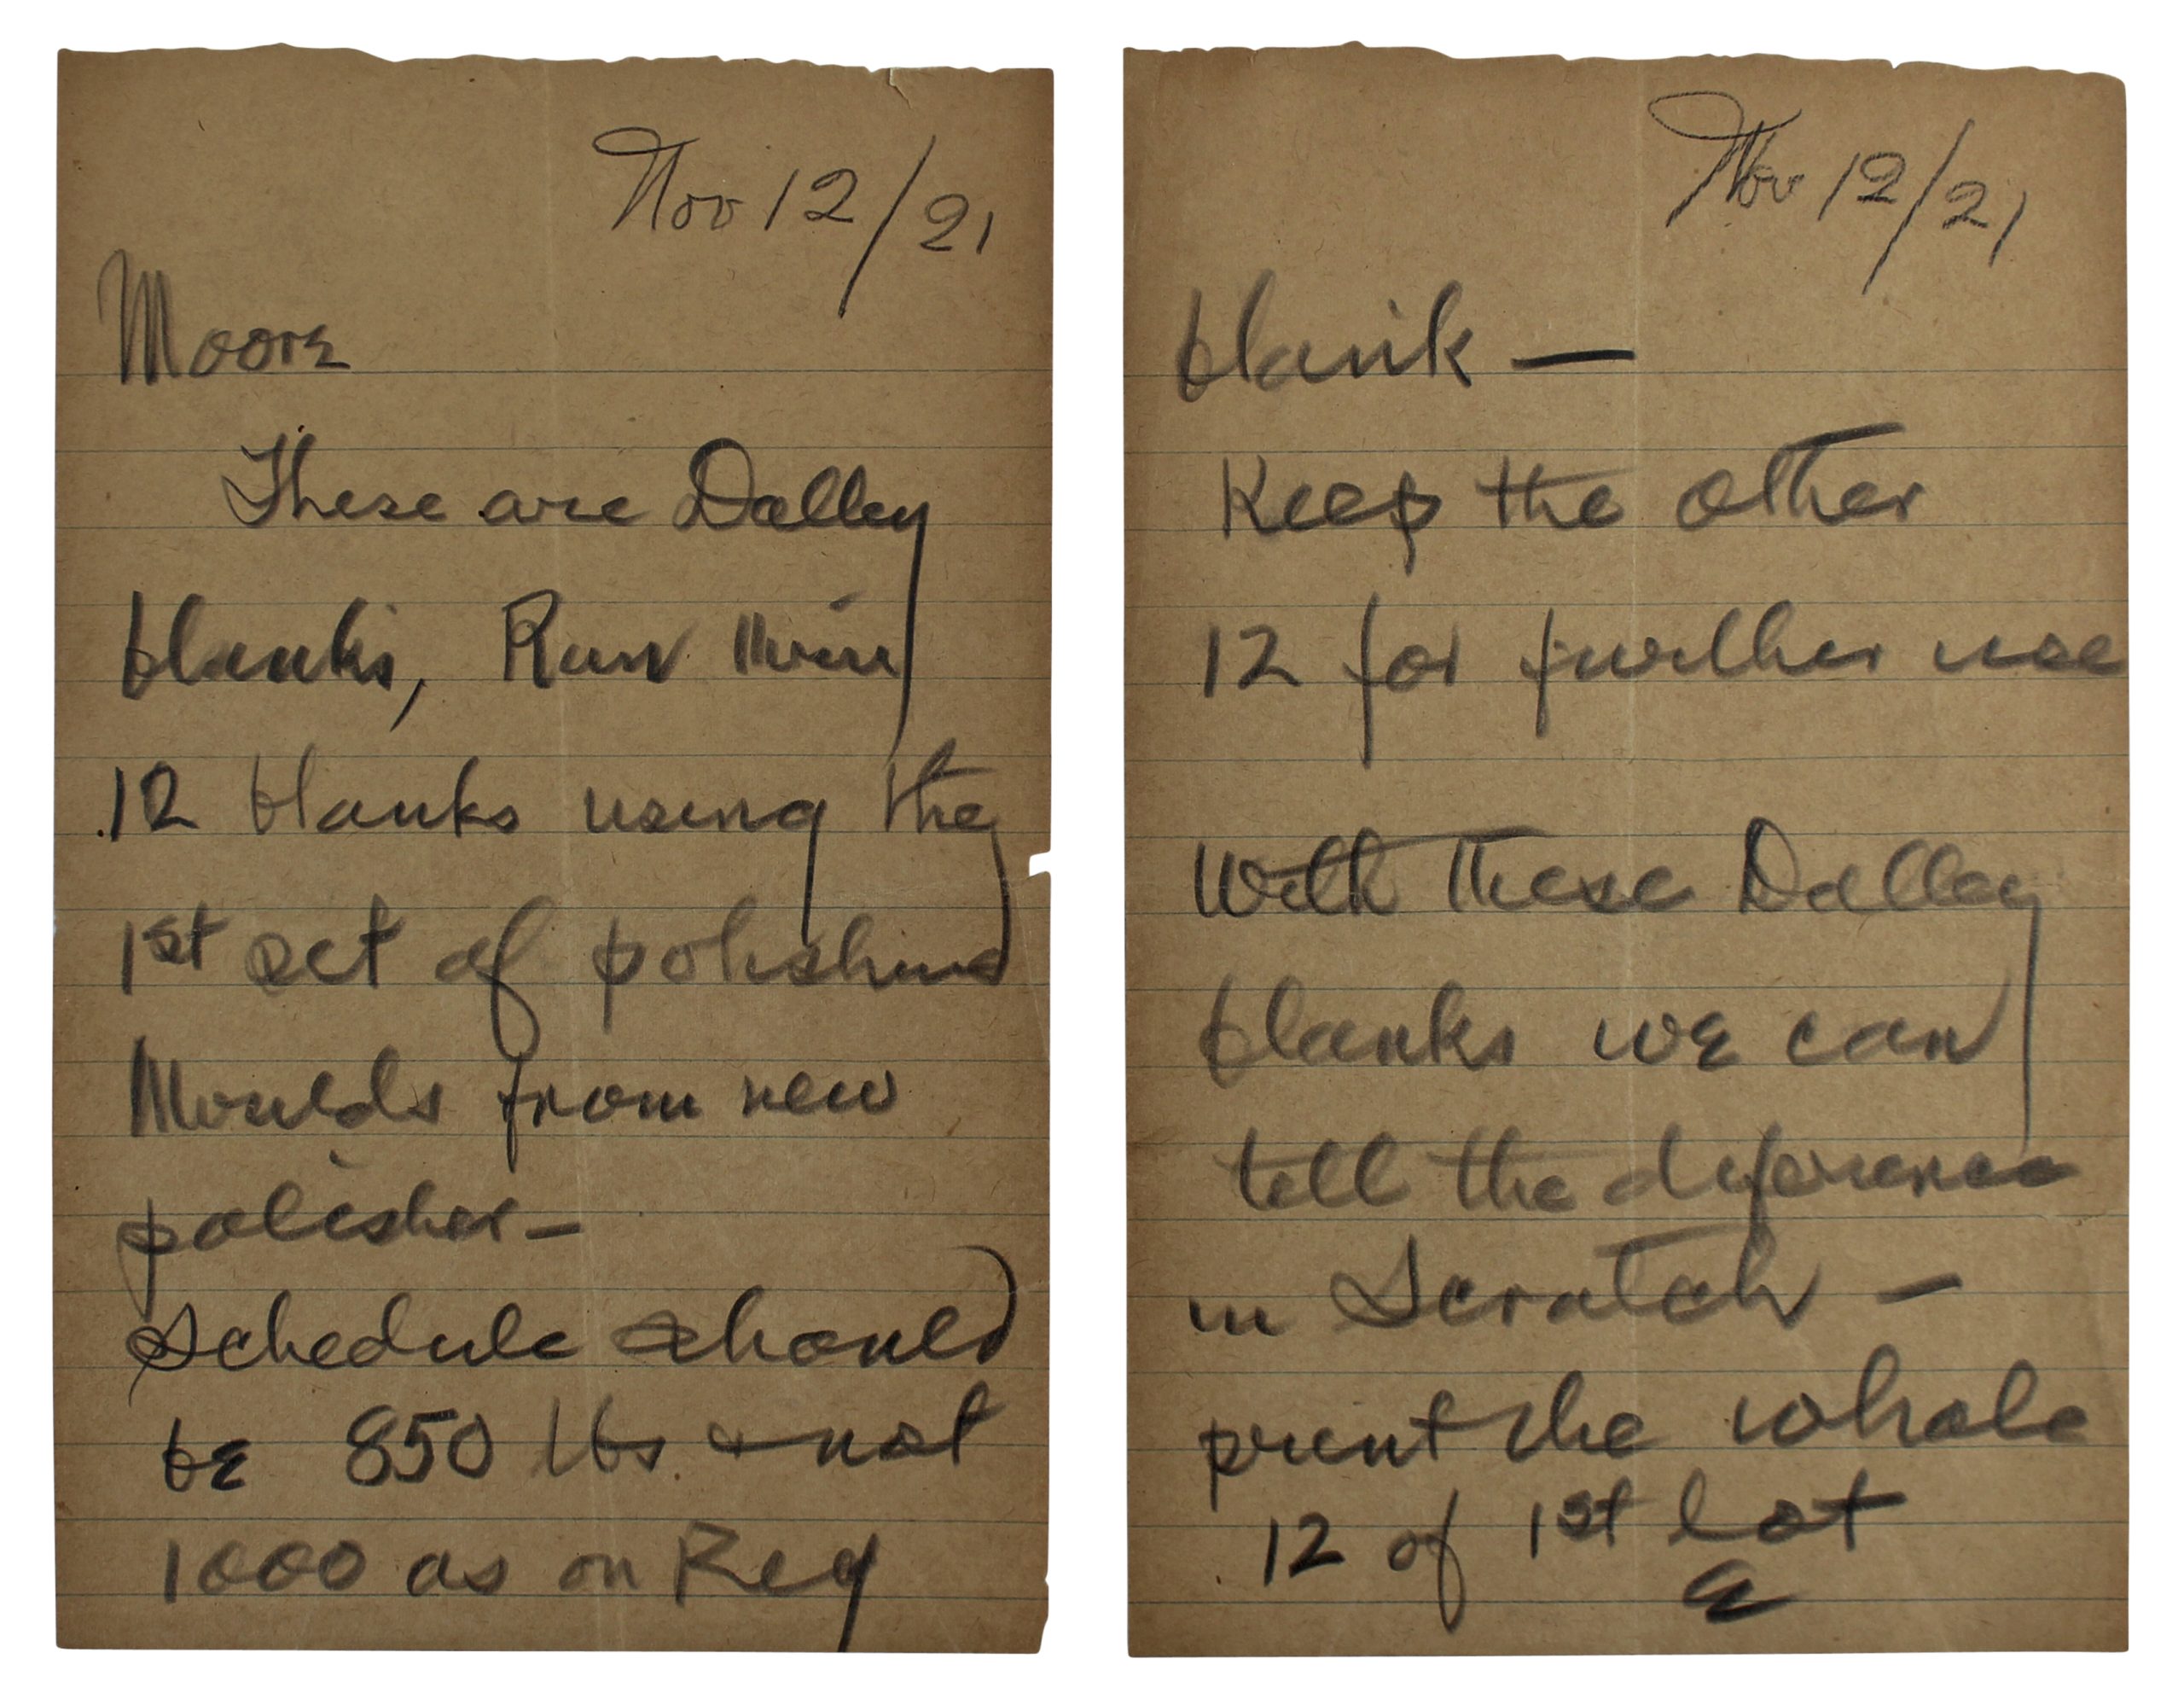 Nov 12/21
Moore
These are Dalley
blanks, Run
12 blanks using the
1st set of polishing
Moulds from new
polisher —
Schedule should
be 850 lbs. & not
1000 as on Reg
Nov 12/21
blank —
Keep the other
12 for further use
With these Dalley
blanks we can
tell the diference
in Scratch —
print the whole
12 of 1st lot
E